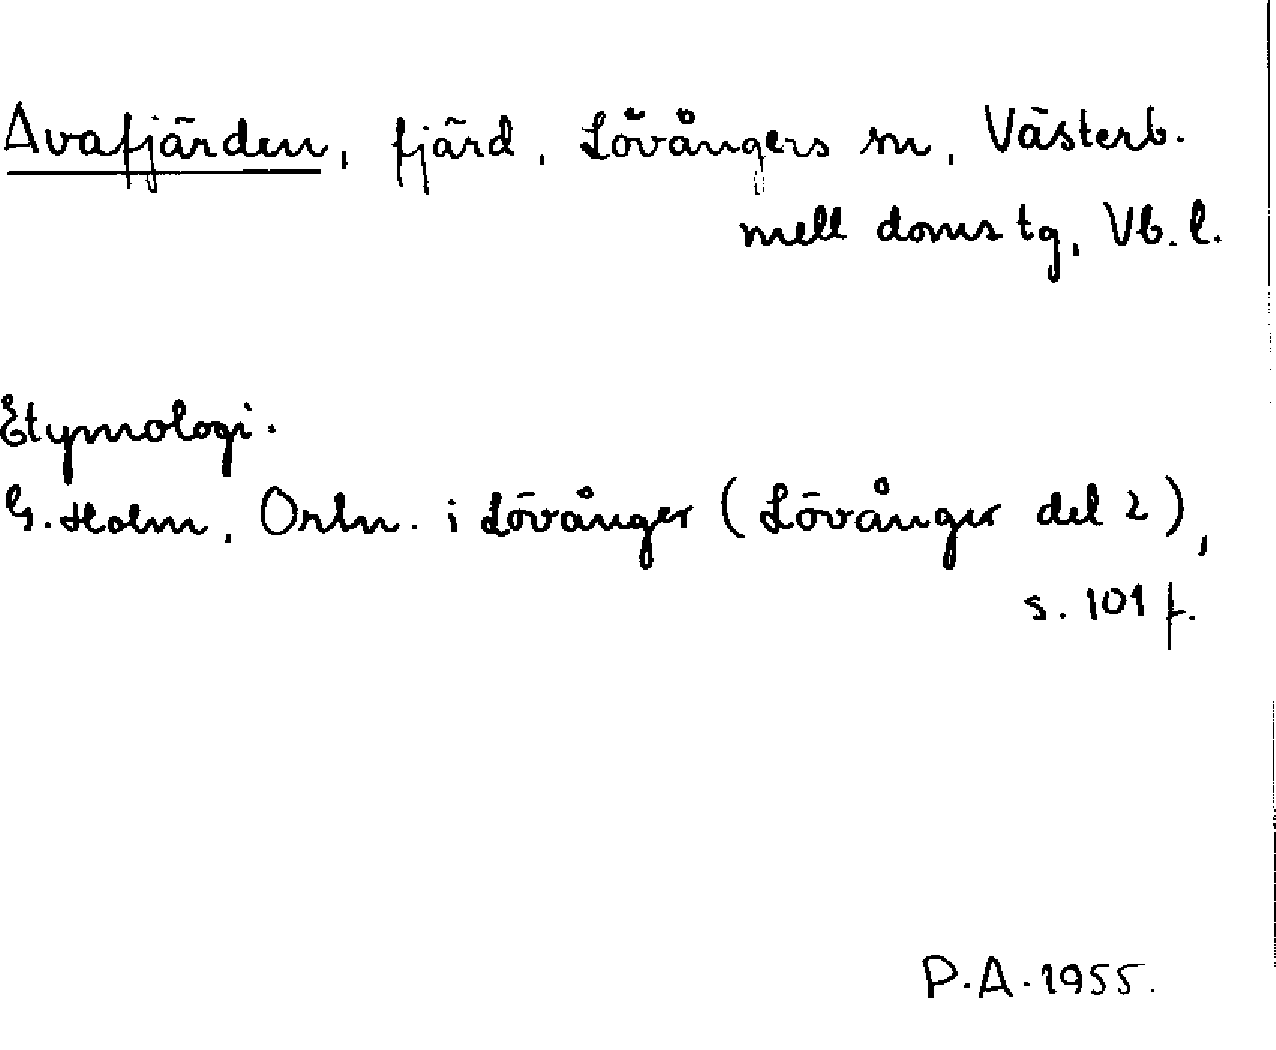 Avafjärden, fjärd, Lövångers sn, Västerb.
mell doms tg, Vb. l.
Etymologi.
G. Holm, Ortn. i Lövånger (Lövånger del 2),
s. 101 f.
P.A. 1955.